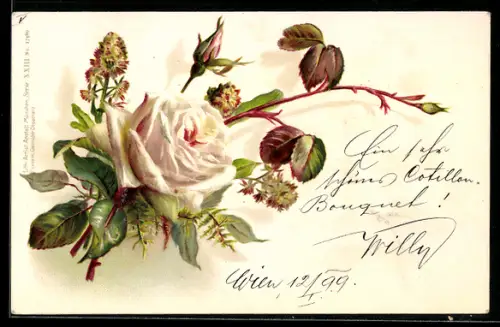 Ein sehr
schönes Cotillon-
Bouquet!
Willy
Wien, 12/I 99.